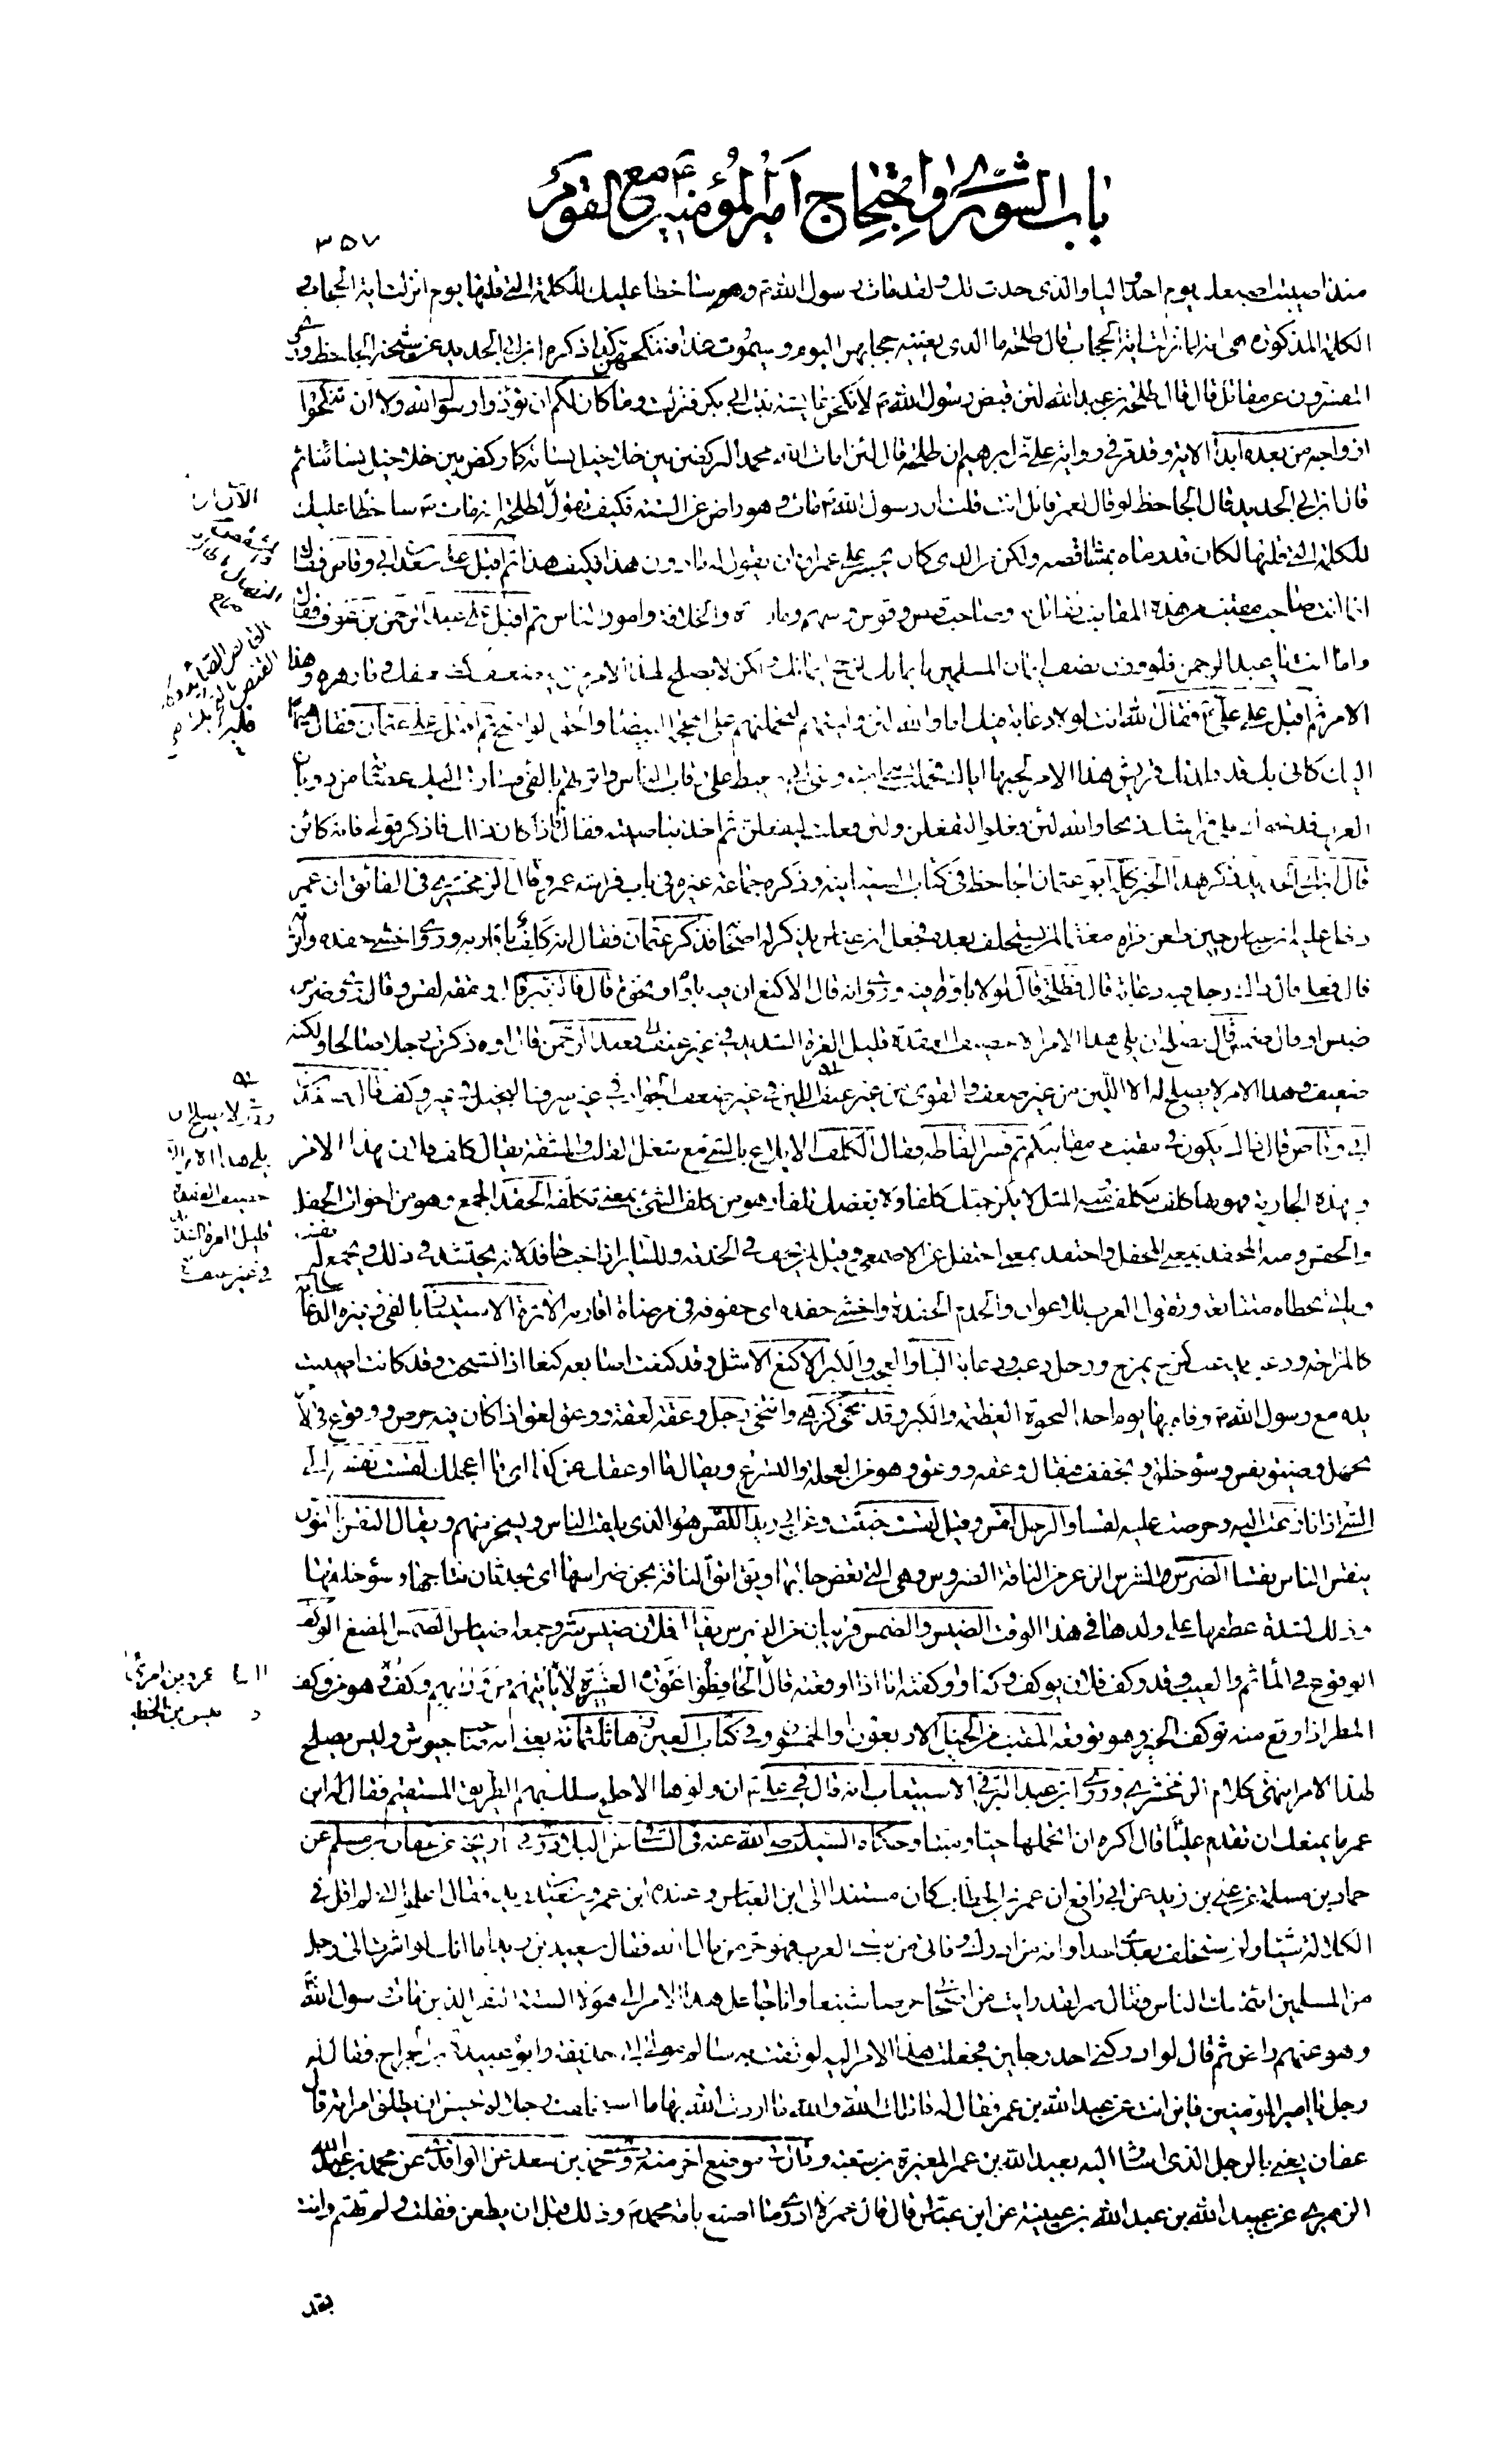 باب الشورى واحتجاج أمير المؤمنين ع مع القوم
٣٥٧
منذ اصيبت اصبعك يوم احد والباو الذى حدث لك ولقد مات رسول الله ص وهو ساخطا عليك للكلمة التي قلتها يوم انزلت اية الحجاب و
الكلمة المذكورة هى انه لما نزلت اية الحجاب قال طلحة ما الذى يعنيه حجابهن اليوم وسيموت غدا فننكحهن كذا ذكره ابن ابى الحديد عن شيخه الجاحظ وروى
المفسرون عن مقاتل قال قال طلحة بن عبيد الله لئن قبض رسول الله ص لانكحن عايشة بنت ابى بكر فنزلت وما كان لكم ان تؤذوا رسول الله ولا ان تنكحوا
ازواجه من بعده ابدا الاية وقد مر فى رواية على بن ابرهيم ان طلحة قال لئن امات الله محمدا لنركضن بين خلاخيل نسائه كما ركض بين خلاخيل نسائنا ثم
قال ابن ابى الحديد قال الجاحظ لو قال لعمر قائل انت قلت ان رسول الله ص مات وهو راض عن الستة فكيف تقول لطلحة انه مات ص ساخطا عليك
للكلمة التي قلتها لكان قد رماه بمشاقصه ولكن من الذى كان يجسر على عمر ان يقول له ما دون هذا فكيف هذا ثم اقبل على سعد بن ابى وقاص فقال
انما انت صاحب مقنب من هذه المقانب تقاتل به وصاحب قنص وقوس وسهم وما زهرة والخلافة وامور الناس ثم اقبل على عبد الرحمن بن عوف فقال
واما انت يا عبد الرحمن فلو وزن نصف ايمان المسلمين بايمانك لرجح ايمانك ولكن لا يصلح هذا الامر لمن فيه ضعف كضعفك وما زهرة وهذا
الامر ثم اقبل على على ع فقال لله انت لولا دعابة فيك اما والله لئن وليتهم لتحملنهم على المحجة البيضاء والحق الواضح ثم اقبل على عثمان فقال هيها
اليك كانى بك قد قلدتك قريش هذا الامر لحبها اياك فحملت بنى امية وبنى ابى معيط على رقاب الناس واثرتهم بالفىء فسارت اليك عصابة من ذؤبان
العرب فذبحوك على فراشك ذبحا والله لئن فعلوا لتفعلن ولئن فعلت ليفعلن ثم اخذ بناصيته فقال فاذا كان ذلك فاذكر قولى فانه كائن
قال ابن ابى الحديد ذكر هذا الخبر كله ابو عثمان الجاحظ فى كتاب السفيانية وذكره جماعة غيره فى باب فراسة عمر وقال الزمخشرى فى الفائق ان عمر
دخل عليه ابن عباس حين طعن فراه مغتما لمن يستخلف بعده فجعل ابن عباس يذكر له اصحابه فذكر عثمان فقال انه كلف باقاربه وروى اخشى حفده واثرته
قال فعلى قال ذاك رجل فيه دعابة قال فطلحة قال لولا باو فيه وروى انه قال الاكنع ان فيه باوا او نخوة قال فالزبير قال وعقة لقس وقال روى ضرس
ضبس او قال ضمس قال يصلح ان يلى هذا الامر قليل الغرة الشديد فى غير عنف فعبد الرحمن قال اوه ذكرت رجلا صالحا ولكنه
ضعيف وهذا الامر لا يصلح له الا اللين من غير ضعف والقوى من غير عنف اللين فى غير ضعف الجواد فى غير سرف البخيل فى غير وكف قال فسعد بن
ابى وقاص قال ذاك يكون فى مقنب من مقانبكم ثم فسر الفاظه فقال الكلف الايلاع بالشىء مع شغل القلب والمشقة يقال كلف فلان بهذا الامر
وبهذه الجارية فهو بها كلف مكلف ومنه المثل لا يكن حبك كلفا ولا بغضك تلفا وهو من كلف الشىء بمعنى تكلفه الحفد الجمع وهو من اخوات الحفل
والحفش ومنه المحفد بمعنى المحفل واحتفد بمعنى احتفل عن الاصمعى وقيل لمن يخف فى الخدمة وللسائر اذا خب حافد لانه يحتشد فى ذلك ويجمع له نفسه
وياتى بخطاه متتابعة وتقول العرب للاعوان والخدم الحفدة واخشى حفده اى حفوفه فى مرضاة اقاربه الاثرة الاستيثار بالفىء وغيره الدعابة
كالمزاحة ودعب يدعب كمزح يمزح ورجل دعب ودعابة الباو العجب والكبر الاكنع الاشل وقد كنعت اصابعه كنعا اذا تشنجت وقد كانت اصيبت
يده مع رسول الله ص وقاه بها يوم احد النخوة العظمة والكبر وقد نخى كزهى وانتخى رجل وعقة لعقة ووعق لعق اذا كان فيه حرص ووقوع فى الامر
بجهل وضيق نفس وسوء خلق ويخفف فيقال وعقة ووعق وهو من العجلة والتسرع ويقال ما اوعقك عن كذا اى ما اعجلك لقست نفسه الى
الشىء اذا نازعت اليه وحرصت عليه لقسا والرجل لقس وقيل لقست خبثت وعن ابى زيد اللقس هو الذى يلقب الناس ويسخر منهم ويقال النقس بالنون
ينقس الناس نقسا الضرس الشرس الزعر من الناقة الضروس وهى التي تعض حالبها ويق اتق الناقة بجن ضراسها اى بحدثان نتاجها وسوء خلقها
وذلك لشدة عطفها على ولدها فى هذا الوقت الضبس والضمس قريبان من الضرس يقال فلان ضبس شر وجمعه اضباس الضمس المضغ الوكف
الوقوع فى المأثم والعيب وقد وكف فلان يوكف وكفا واوكفته انا اذا اوقعته قال الحافظوا عورة العشيرة لا ياتيهم من ورائهم وكف وهو من وكف
المطر اذا وقع منه توكف الخبر وهو توقعه المقنب من الخيل الاربعون والخمسون وفى كتاب العين زهاء ثلثمائة يعنى انه صاحب جيوش وليس يصلح
لهذا الامر انتهى كلام الزمخشرى وروى ابن عبد البر فى الاستيعاب انه قال فى على ع ان ولوها الاجلح سلك بهم الطريق المستقيم فقال له ابن
عمر ما يمنعك ان تقدم عليا قال اكره ان اتحملها حيا وميتا وحكاه السيد رضى الله عنه فى الشافى عن البلاذرى فى تاريخه عن عفان بن مسلم عن
حماد بن مسلمة عن على بن زيد عن ابى رافع ان عمر بن الخطاب كان مستندا الى ابن العباس وعنده ابن عمر وسعيد بن زيد فقال اعلموا انى لم اقل فى
الكلالة شيئا ولم استخلف بعدى احدا وانه من ادرك وفاتى من سبى العرب فهو حر من مال الله فقال سعيد بن زيد اما انك لو اشرت الى رجل
من المسلمين ائتمنك الناس فقال عمر لقد رايت من اصحابى حرصا شنيعا وانا جاعل هذا الامر الى هؤلاء الستة النفر الذين مات رسول الله ص
وهو عنهم راض ثم قال لو ادركنى احد رجلين فجعلت هذا الامر اليه لوثقت به سالم مولى ابى حذيفة وابو عبيدة بن الجراح فقال له
رجل يا امير المؤمنين فاين انت عن عبد الله بن عمر فقال له قاتلك الله والله ما اردت الله بها ما استخلف رجلا لم يحسن ان يطلق امراته قال
عفان يعنى بالرجل الذى اشار اليه بعبد الله بن عمر المغيرة بن شعبة وقال فى موضع اخر منه وروى محمد بن سعد عن الواقدى عن محمد بن عبد الله
الزهرى عن عبيد الله بن عبد الله بن عيينة عن ابن عباس قال قال عمر لا ادرى ما اصنع بامة محمد ص وذلك قبل ان يطعن فقلت ولم تهتم وانت
بقد